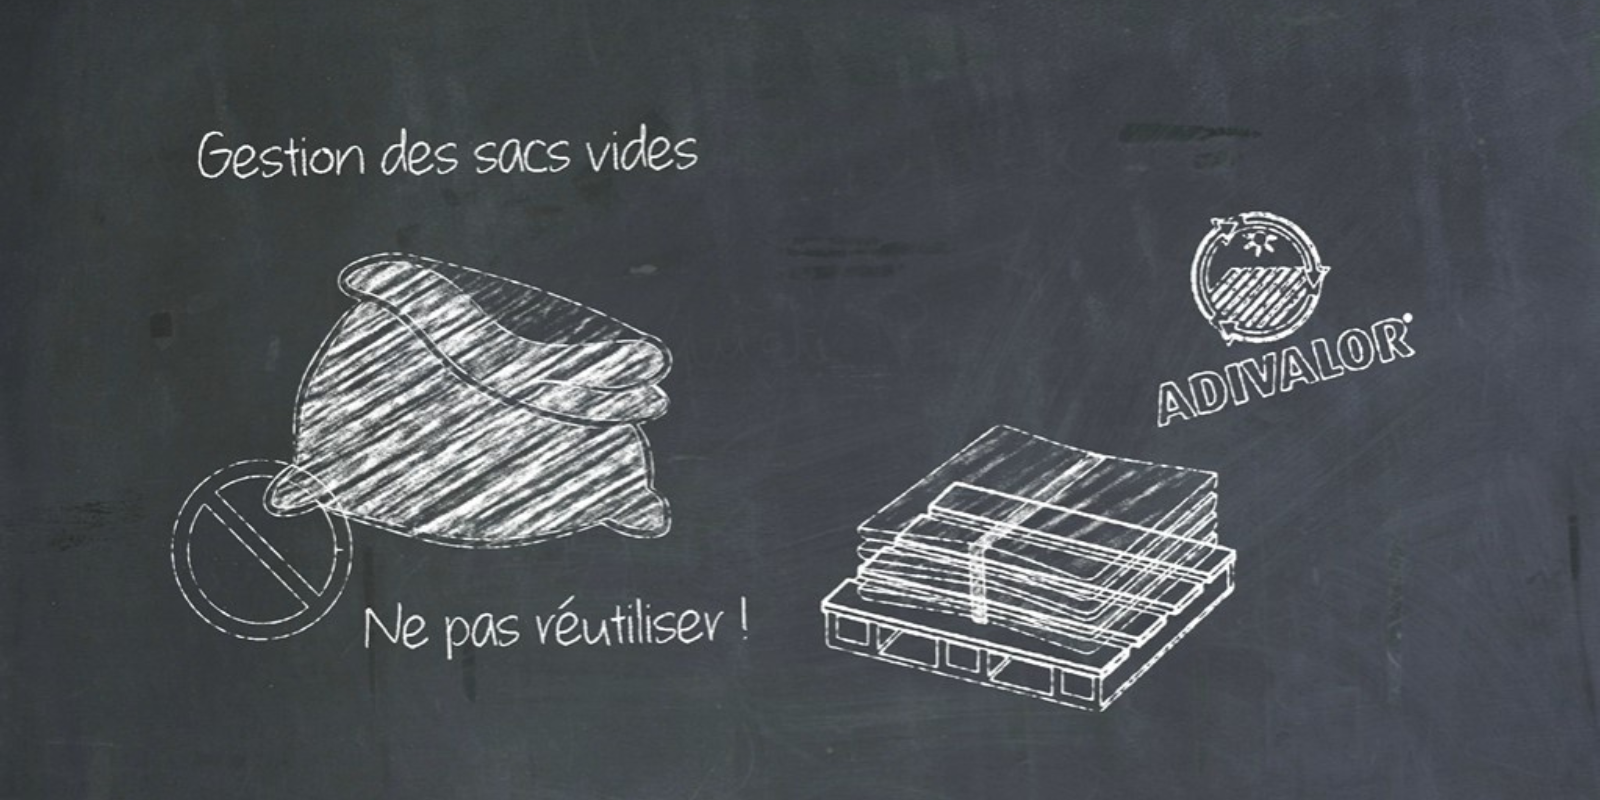 Gestion des sacs vides
ADIVALOR
Ne pas réutiliser !